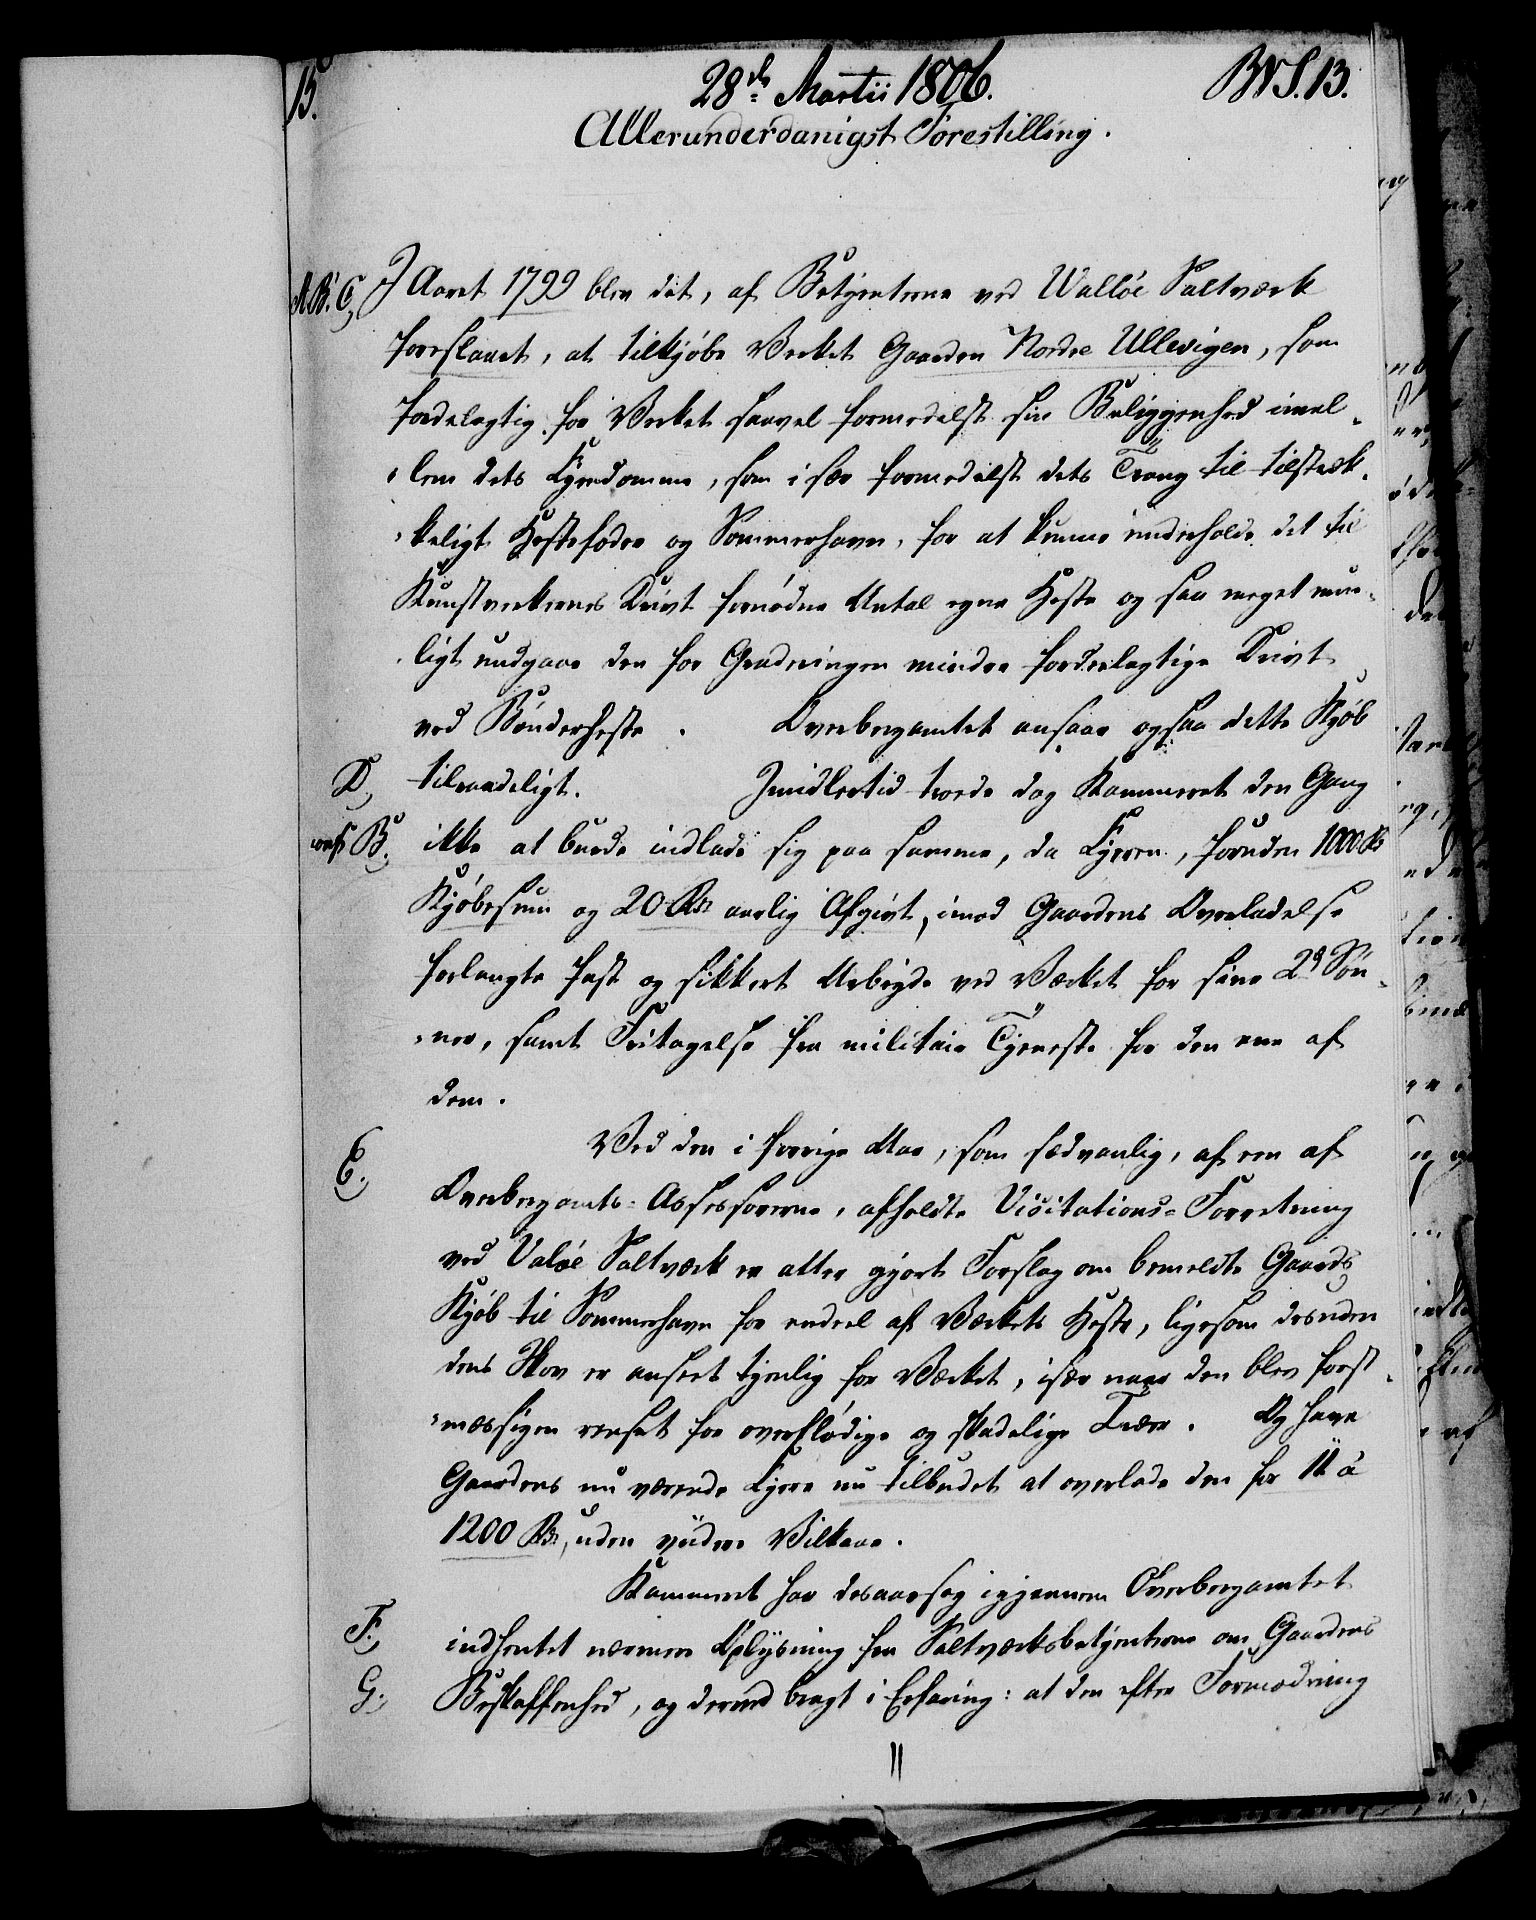 15.
28de Martii 1806.
B.V.S. 13.
Allerunderdanigst Forestilling.
A.B.C, I Aaret 1799 blev det, af Betjenterne ved Walløe Saltværk
foreslaaet, at tilkjøbe Verket Gaarden Nordre Ullevigen, som
fordelagtig for Verket saavel formedelst sin Beliggenhed imel-
-lem dets Ejendomme, som i sær formedelst dets Trang til tilstræk-
-keligt Hestefoder og Sommerhavn, for at kunne underholde det til
Kunstverkernes Drivt fornødne Antal egne Heste og saa meget mue-
-ligt undgaae den for Graderingen mindre fordeelagtige Drivt
ved Bønderheste. Overbergamtet ansaae ogsaa dette Kjøb
D, tilraadeligt. Imidlertid troede dog Kammeret den Gang
B. ikke at burde indlade sig paa samme, da Ejeren, foruden 1000 Rd
Kjøbesum og 20 Rdr aarlig Afgivt, imod Gaardens Overladelse
forlangte fast og sikkert Arbeyde ved Værket for sine 2de Søn-
-ner, samt Fritagelse fra militair Tjeneste for den ene af
dem.
E., Ved den i forrige Aar, som sædvanlig, af een af
Overbergamts-Assessorerne, afholdte Visitations-Forretning
ved Valøe Saltværk er atter gjort Forslag om bemeldte Gaards
Kjøb til Sommerhavn for endeel af Værkets Heste, ligesom desuden
dens Skov er anseet tjenlig for Værket, især naar den blev forst-
-mæssigen renset for overflødige og skadelige Træer. Og have
Gaardens nu værende Ejere nu tilbudet at overlade den for 11 à
1200 Rdr, uden viidere Vilkaar.
Kammeret har desaarsag igjennem Overbergamtet
F., indhentet nærmere Oplysning fra Saltværksbetjenterne om Gaardens
G., Beskaffenhed, og derved bragt i Erfaring: at den efter Formodning